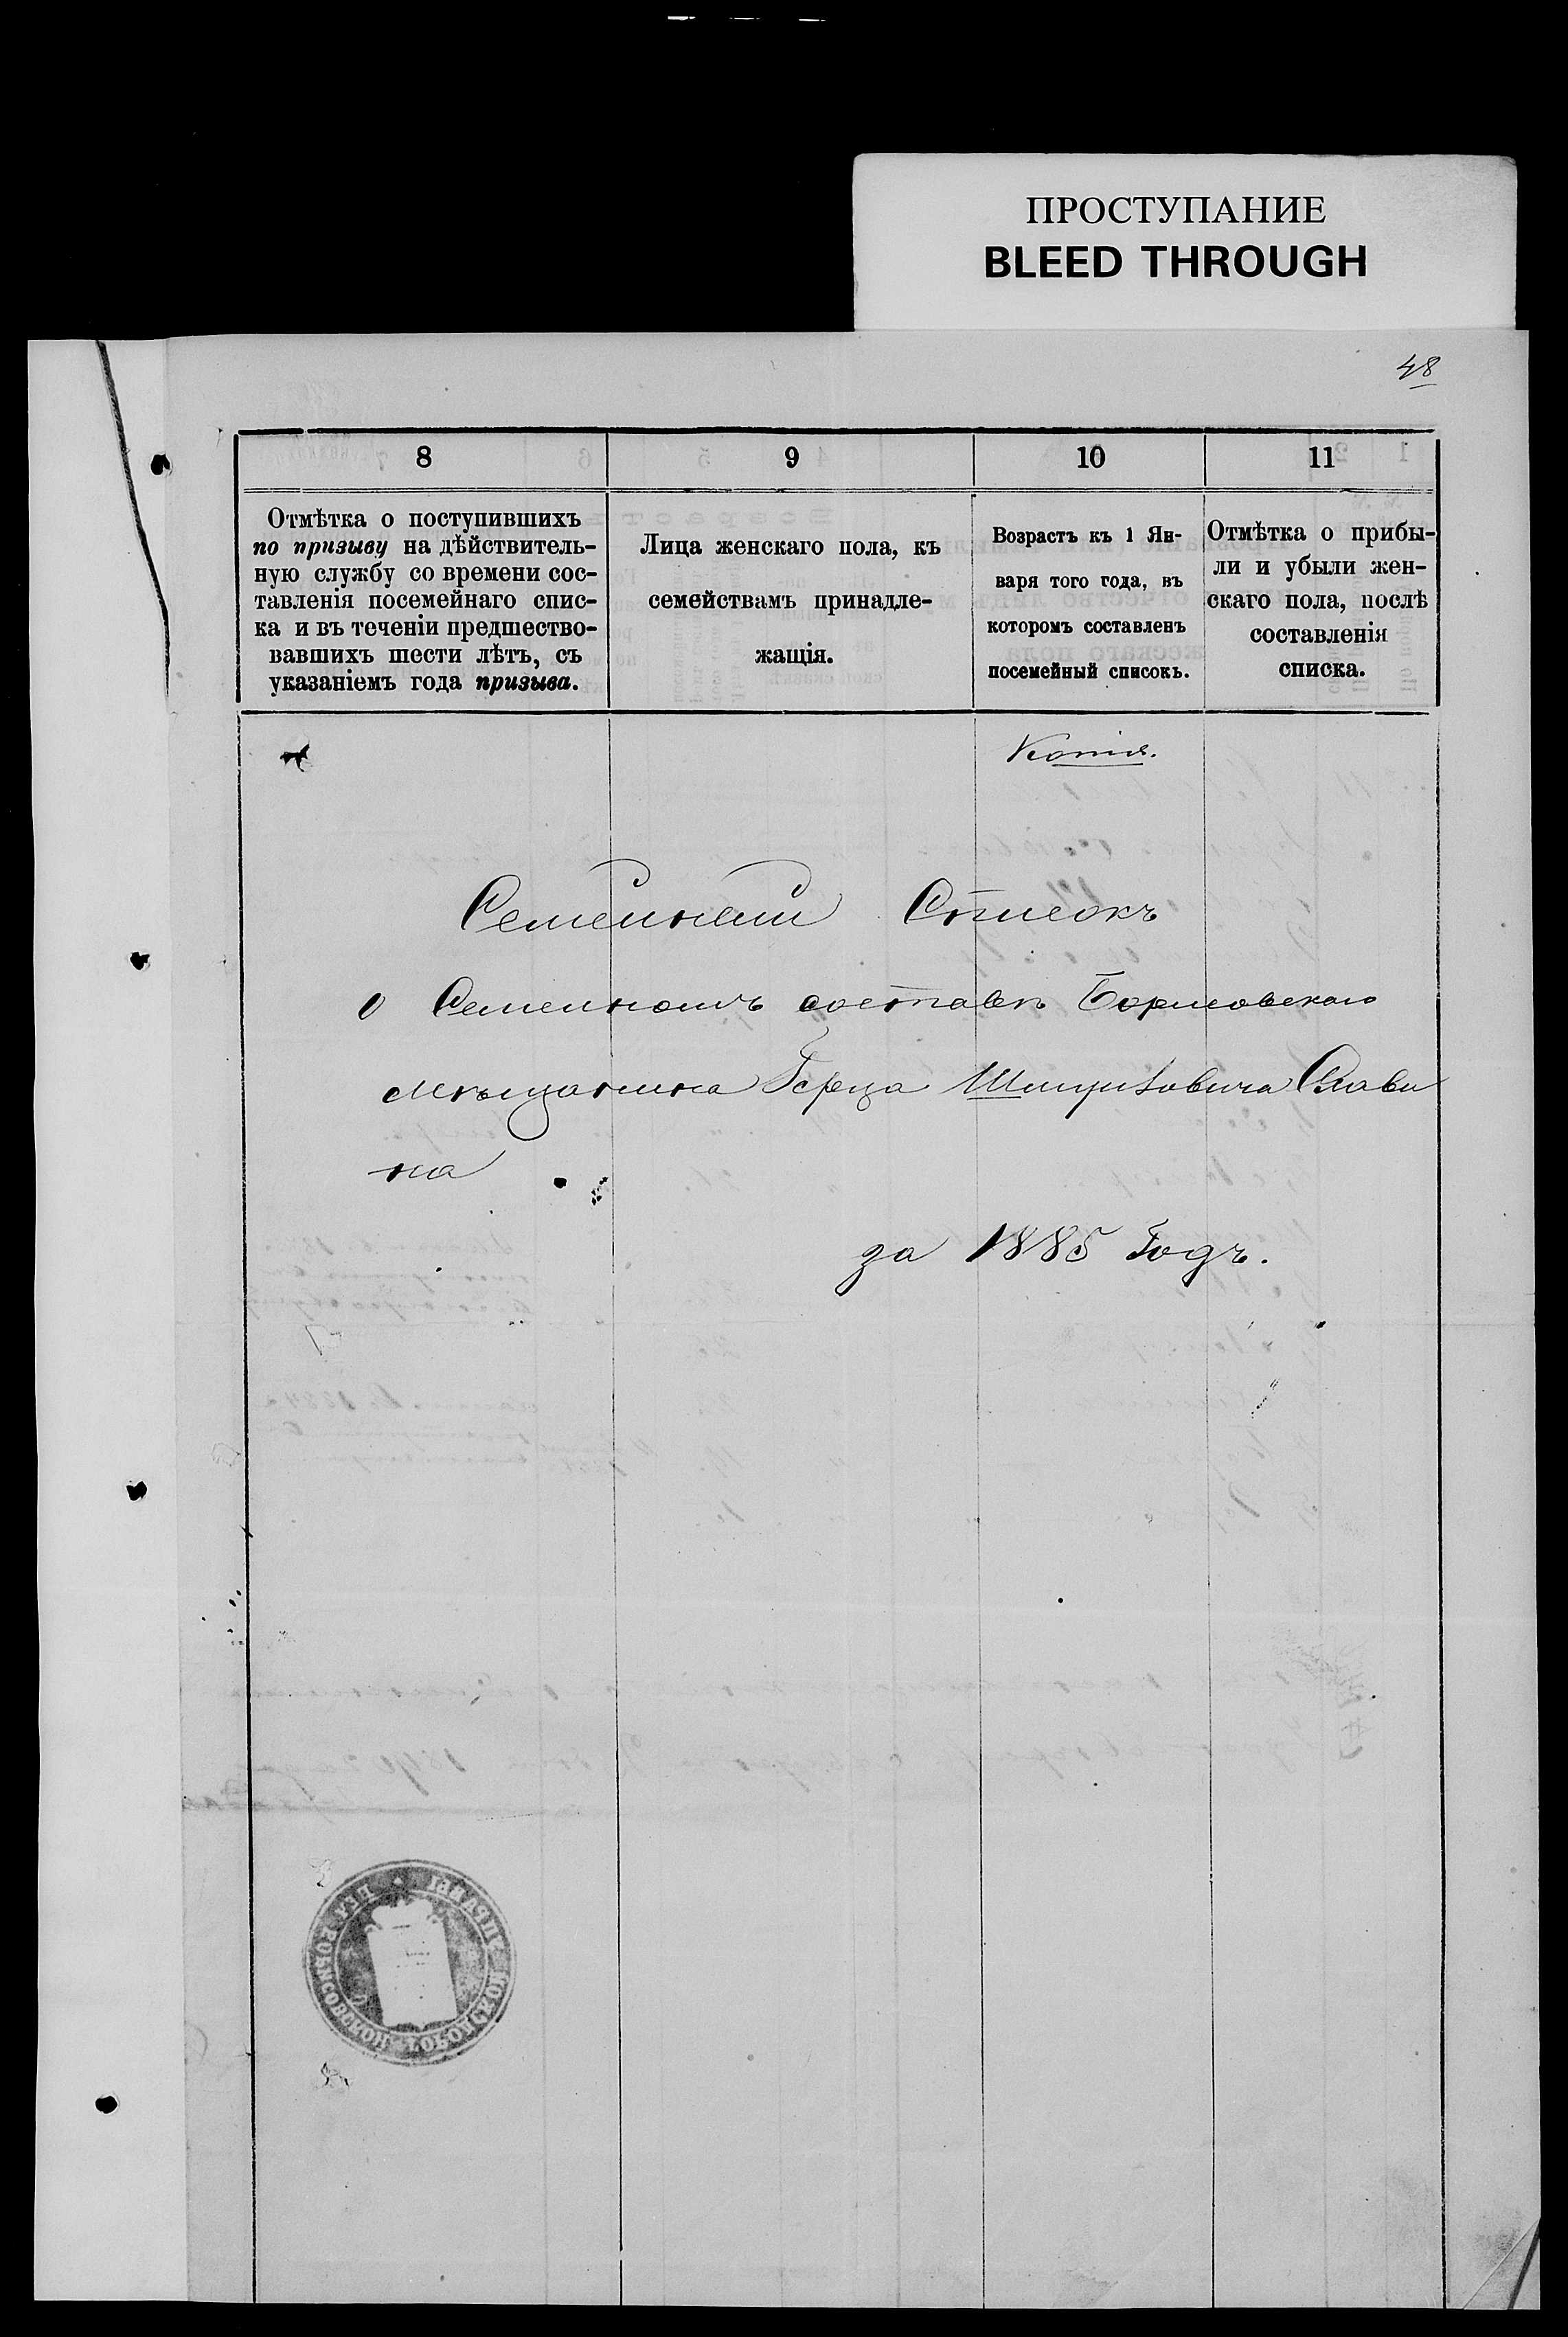 ПРОСТУПАНИЕ
BLEED THROUGH
48
8
9
10
11
Отмѣтка о поступившихъ
по призыву на дѣйствитель-
ную службу со времени сос-
тавленія посемейнаго спис-
ка и въ теченіи предшество-
вавшихъ шести лѣтъ, съ
указаніемъ года призыва.
Лица женскаго пола, къ
семействамъ принадле-
жащія.
Возрастъ къ 1 Ян-
варя того года, въ
которомъ составленъ
посемейный списокъ.
Отмѣтка о прибы-
ли и убыли жен-
скаго пола, послѣ
составленія
списка.
Копія.
Семейный Списокъ
о Семейномъ составѣ Борисовскаго
мѣщанина Герца Слави
на
за 1885 Годъ.